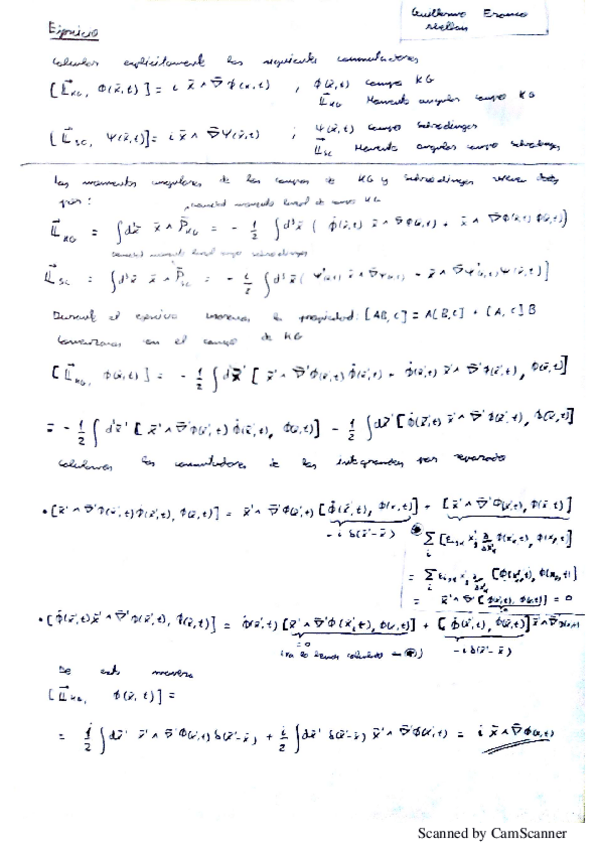 Guillermo Franco
Ejercicio
Calcular explícitamente los siguientes conmutadores
[L⃗_KG, ϕ(x̄,t)] = i x̄ ∧ ∇̄ϕ(x,t) , ϕ(x̄,t) campo KG
L⃗_KG Momento angular campo KG
[L⃗_SC, Ψ(x̄,t)] = i x̄ ∧ ∇̄Ψ(x̄,t) ; Ψ(x̄,t) campo Schrodinger
L⃗_SC Momento angular campo Schrodinger
Los momentos angulares de los campos de KG y Schrodinger
por: densidad momento lineal de campo KG
L⃗_KG = ∫d³x̄ x̄ ∧ P̄_KG = - 1/2 ∫d³x̄ ( ϕ̇(x̄,t) x̄ ∧ ∇̄ϕ(x̄,t) + x̄ ∧ ∇̄ϕ(x̄,t) ϕ̇(x̄,t))
densidad momento lineal campo schrodinger
L⃗_SC = ∫d³x̄ x̄ ∧ P̄_SC = - i/2 ∫d³x̄ ( Ψ†(x̄,t) x̄ ∧ ∇̄Ψ(x̄,t) - x̄ ∧ ∇̄Ψ†(x̄,t) Ψ(x̄,t)]
Durante el ejercicio usaremos la propiedad: [AB, C] = A[B,C] + [A, C]B
Comenzamos con el campo de KG
[L⃗_KG, ϕ(x̄,t)] = - 1/2 ∫dx̄' [ x̄' ∧ ∇̄'ϕ(x̄',t) ϕ̇(x̄',t) + ϕ̇(x̄',t) x̄' ∧ ∇̄'ϕ(x̄',t) , ϕ(x̄,t)]
= - 1/2 ∫d³x̄' [ x̄' ∧ ∇̄'ϕ(x̄',t) ϕ̇(x̄',t), ϕ(x̄,t)] - 1/2 ∫dx̄' [ϕ̇(x̄',t) x̄' ∧ ∇̄'ϕ(x̄',t), ϕ(x̄,t)]
Calculamos los conmutadores de los integrandos por separado
• [x̄' ∧ ∇̄'ϕ(x̄',t) ϕ̇(x̄',t), ϕ(x̄,t)] = x̄' ∧ ∇̄'ϕ(x̄',t) [ϕ̇(x̄',t), ϕ(x,t)] + [x̄' ∧ ∇̄'ϕ(x̄',t), ϕ(x̄,t)]
- i δ(x̄'-x̄)
= x̄' ∧ ∇̄' [ϕ(x̄',t), ϕ(x̄,t)] = 0
• [ϕ̇(x̄',t) x̄' ∧ ∇̄'ϕ(x̄',t), ϕ(x̄,t)] = ϕ̇(x̄',t) [x̄' ∧ ∇̄'ϕ(x̄',t), ϕ(x,t)] + [ϕ̇(x̄',t), ϕ(x̄,t)] x̄' ∧ ∇̄'ϕ(x̄',t)
= 0
(ya lo hemos calculado en ) - i δ(x̄'-x̄)
De esta manera
[L⃗_KG, ϕ(x̄,t)] =
= i/2 ∫dx̄' x̄' ∧ ∇̄'ϕ(x̄',t) δ(x̄'-x̄) + i/2 ∫dx̄' δ(x̄'-x̄) x̄' ∧ ∇̄'ϕ(x̄',t) = i x̄ ∧ ∇̄ϕ(x̄,t)
Scanned by CamScanner